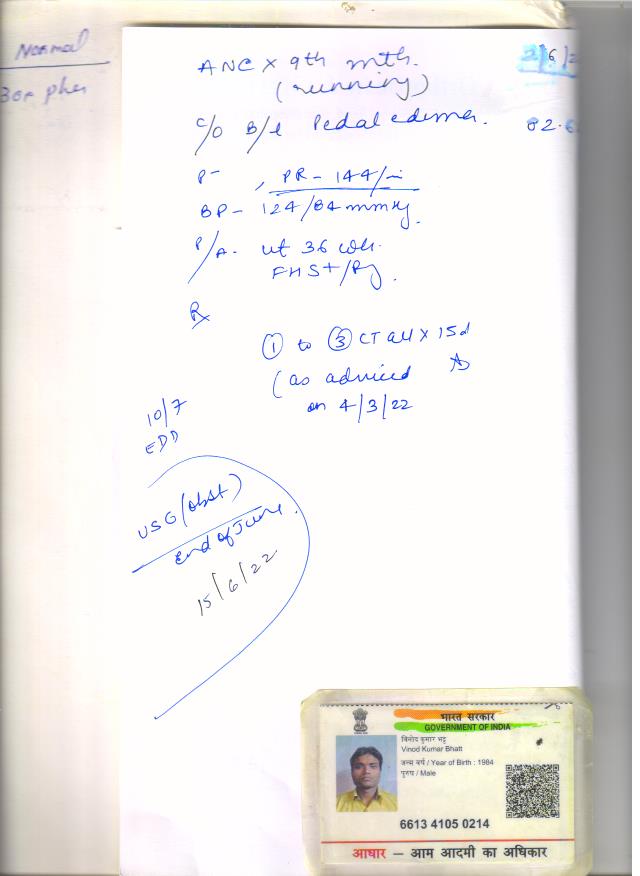 Normal
ANC x 9th mth.
(running)
2/6/2
C/O B/L Pedal edema.
02.6
P-
, PR - 144/m
BP - 124/84 mmHg.
P/A - ut 36 wk.
FHS +/Rg.
Rx
① to ③ CT all x 15d
(as adviced
on 4/3/22
10/7
EDD
USG (obst)
End of June.
15/6/22
भारत सरकार
GOVERNMENT OF INDIA
विनोद कुमार भट्ट
Vinod Kumar Bhatt
जन्म वर्ष / Year of Birth : 1984
पुरुष / Male
6613 4105 0214
आधार — आम आदमी का अधिकार